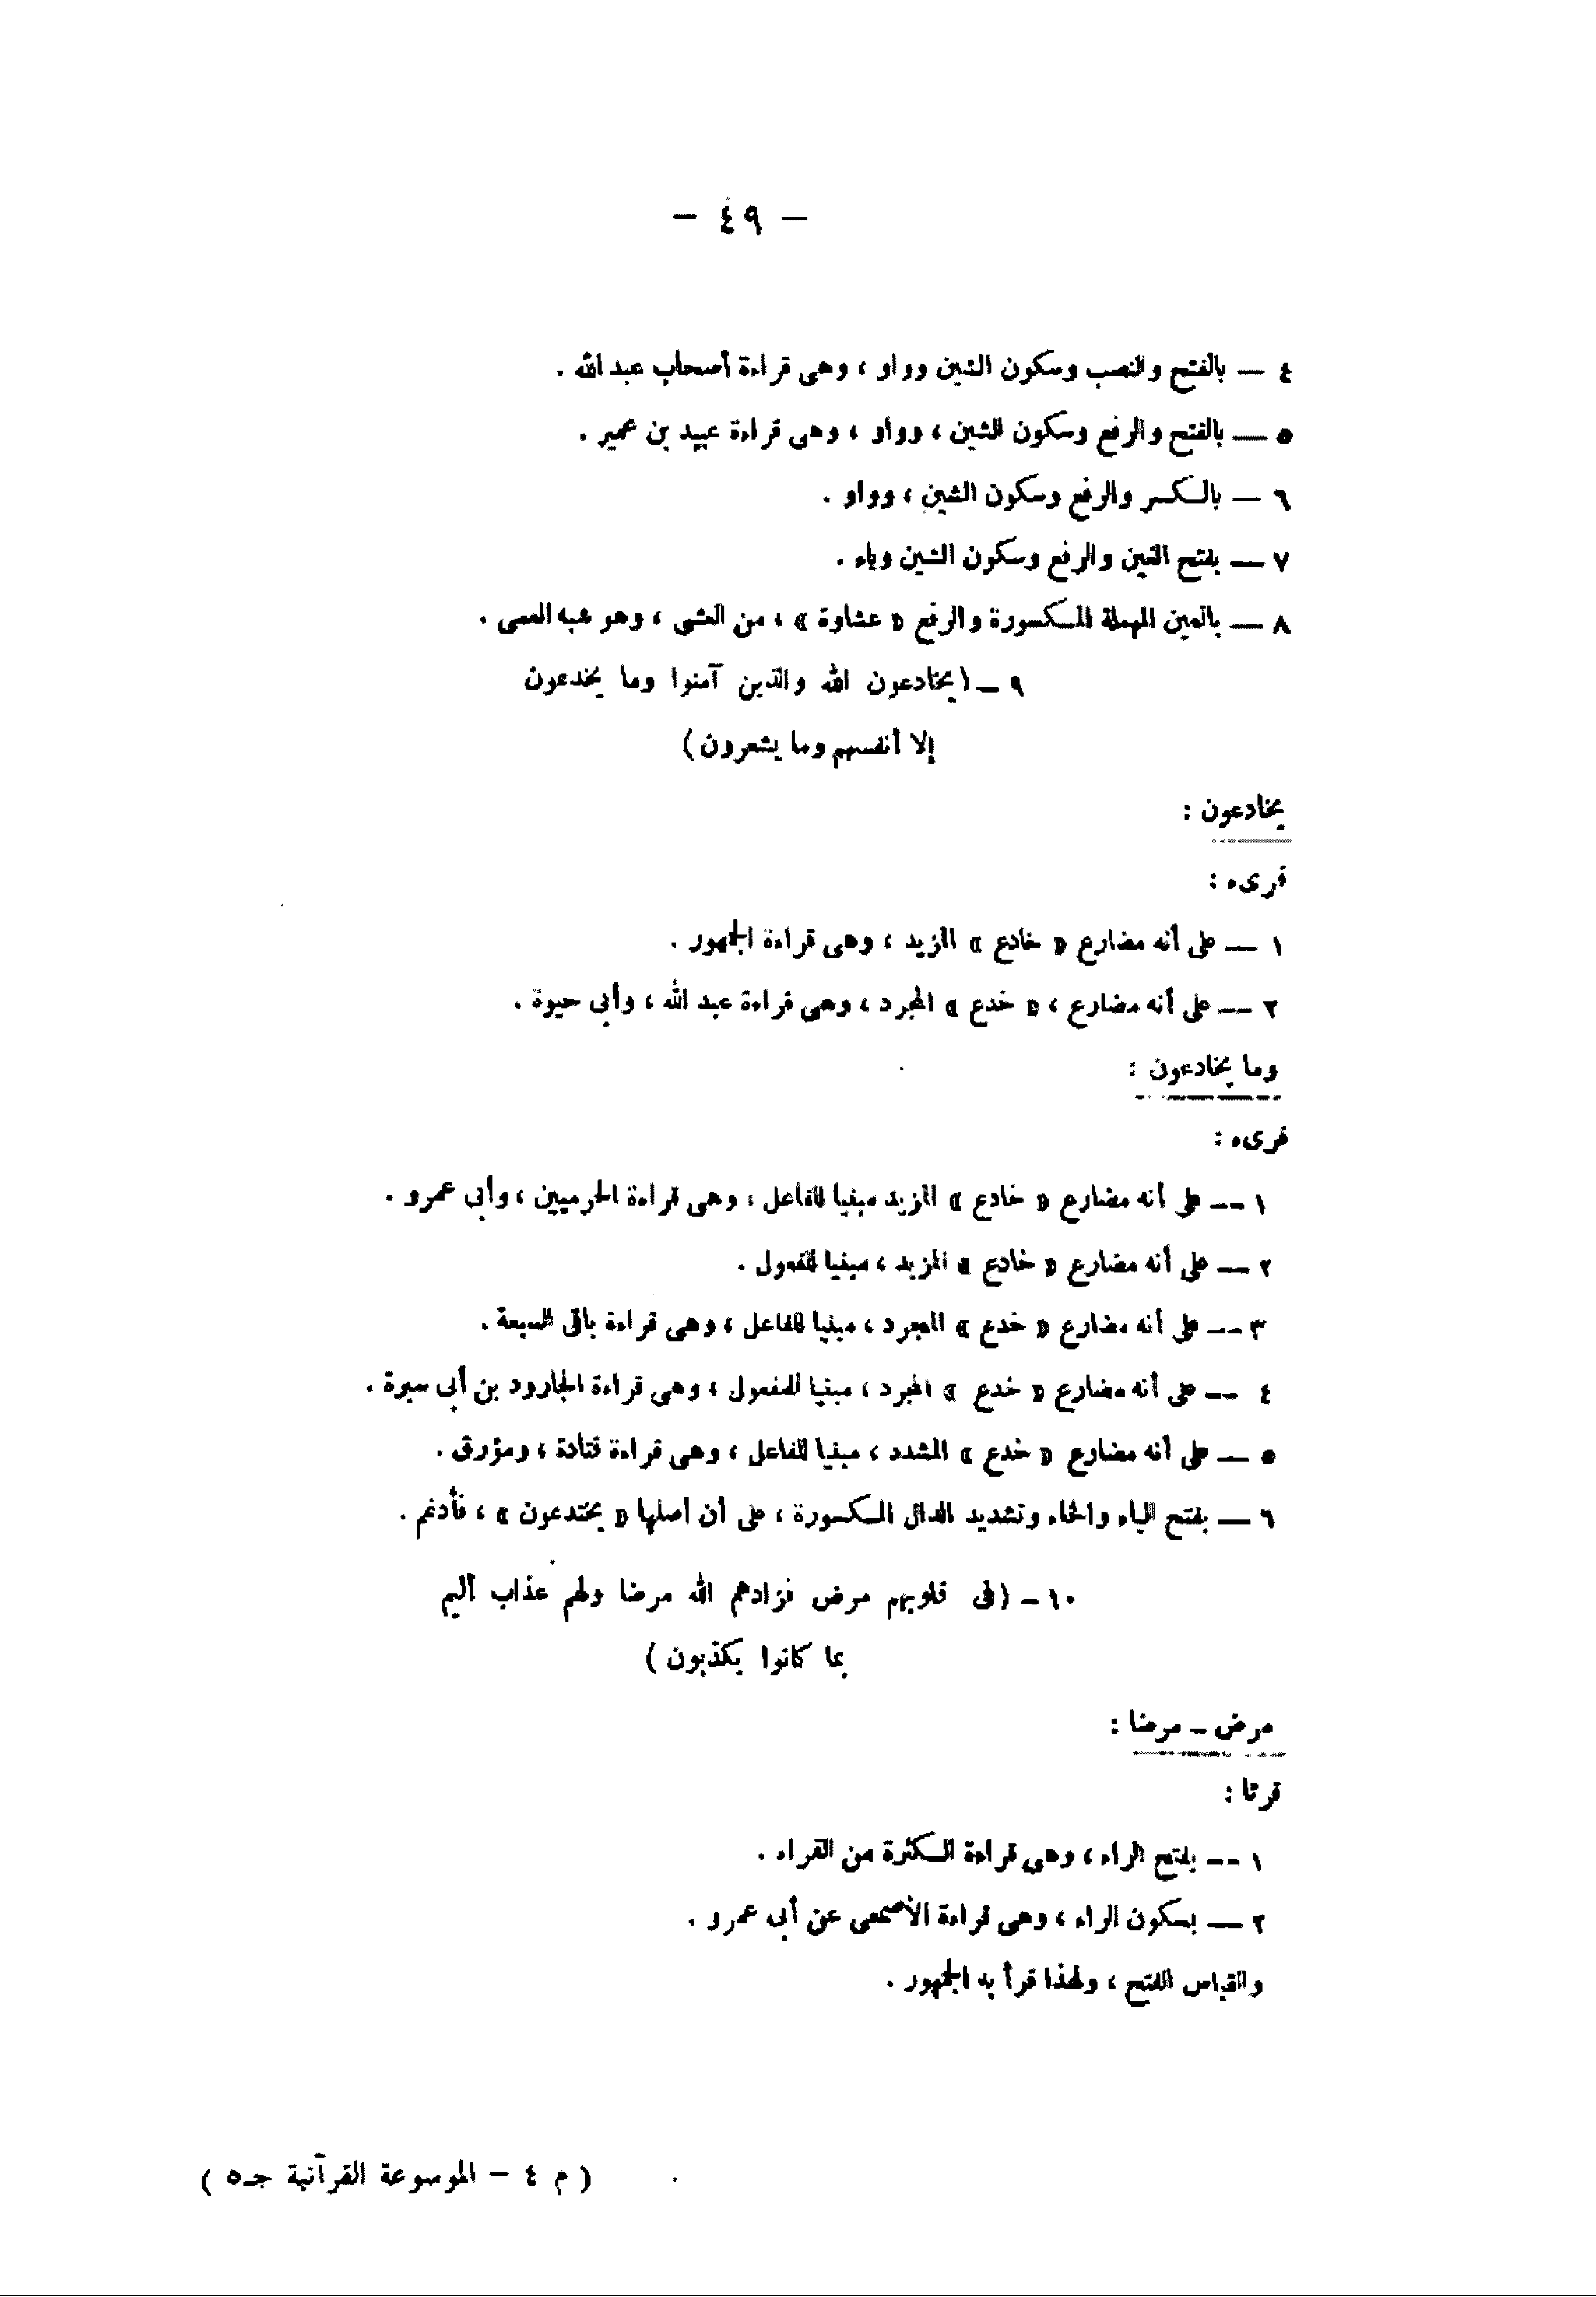 – ٤٩ –
٤ — بالفتح والنصب وسكون الشين وواو ، وهى قراءة أصحاب عبد الله .
٥ — بالفتح والرفع وسكون الشين ، وواو ، وهى قراءة عبيد بن عمير .
٦ — بالكسر والرفع وسكون الشين ، وواو .
٧ — بفتح الغين والرفع وسكون الشين وياء .
٨ — بالعين المهملة المكسورة والرفع « عشاوة » ، من العشى ، وهو شبه العمى .
٩ – (يخادعون الله والذين آمنوا وما يخدعون
إلا أنفسهم وما يشعرون)
يخادعون :
قرىء :
١ — على أنه مضارع « خادع » المزيد ، وهى قراءة الجمهور .
٢ — على أنه مضارع ، « خدع » المجرد ، وهى قراءة عبد الله ، وأبى حيوة .
وما يخادعون :
قرىء :
١ — على أنه مضارع « خادع » المزيد مبنيا للفاعل ، وهى قراءة الحرميين ، وأبى عمرو .
٢ — على أنه مضارع « خادع » المزيد ، مبنيا للمفعول .
٣ — على أنه مضارع « خدع » المجرد ، مبنيا للفاعل ، وهى قراءة باقى السبعة .
٤ — على أنه مضارع « خدع » المجرد ، مبنيا للمفعول ، وهى قراءة الجارود بن أبى سبرة .
٥ — على أنه مضارع « خدع » المشدد ، مبنيا للفاعل ، وهى قراءة قتادة ، ومؤرق .
٦ — بفتح الياء والخاء وتشديد الدال المكسورة ، على أن أصلها « يختدعون » ، فأدغم .
١٠ – (فى قلوبهم مرض فزادهم الله مرضا ولهم عذاب أليم
بما كانوا يكذبون )
مرض – مرضا :
قرئا :
١ — بفتح الراء ، وهى قراءة الكثرة من القراء .
٢ — بسكون الراء ، وهى قراءة الأصمعى عن أبى عمرو .
والقياس الفتح ، ولهذا قرأ به الجمهور .
( م ٤ – الموسوعة القرآنية جـ٥ )